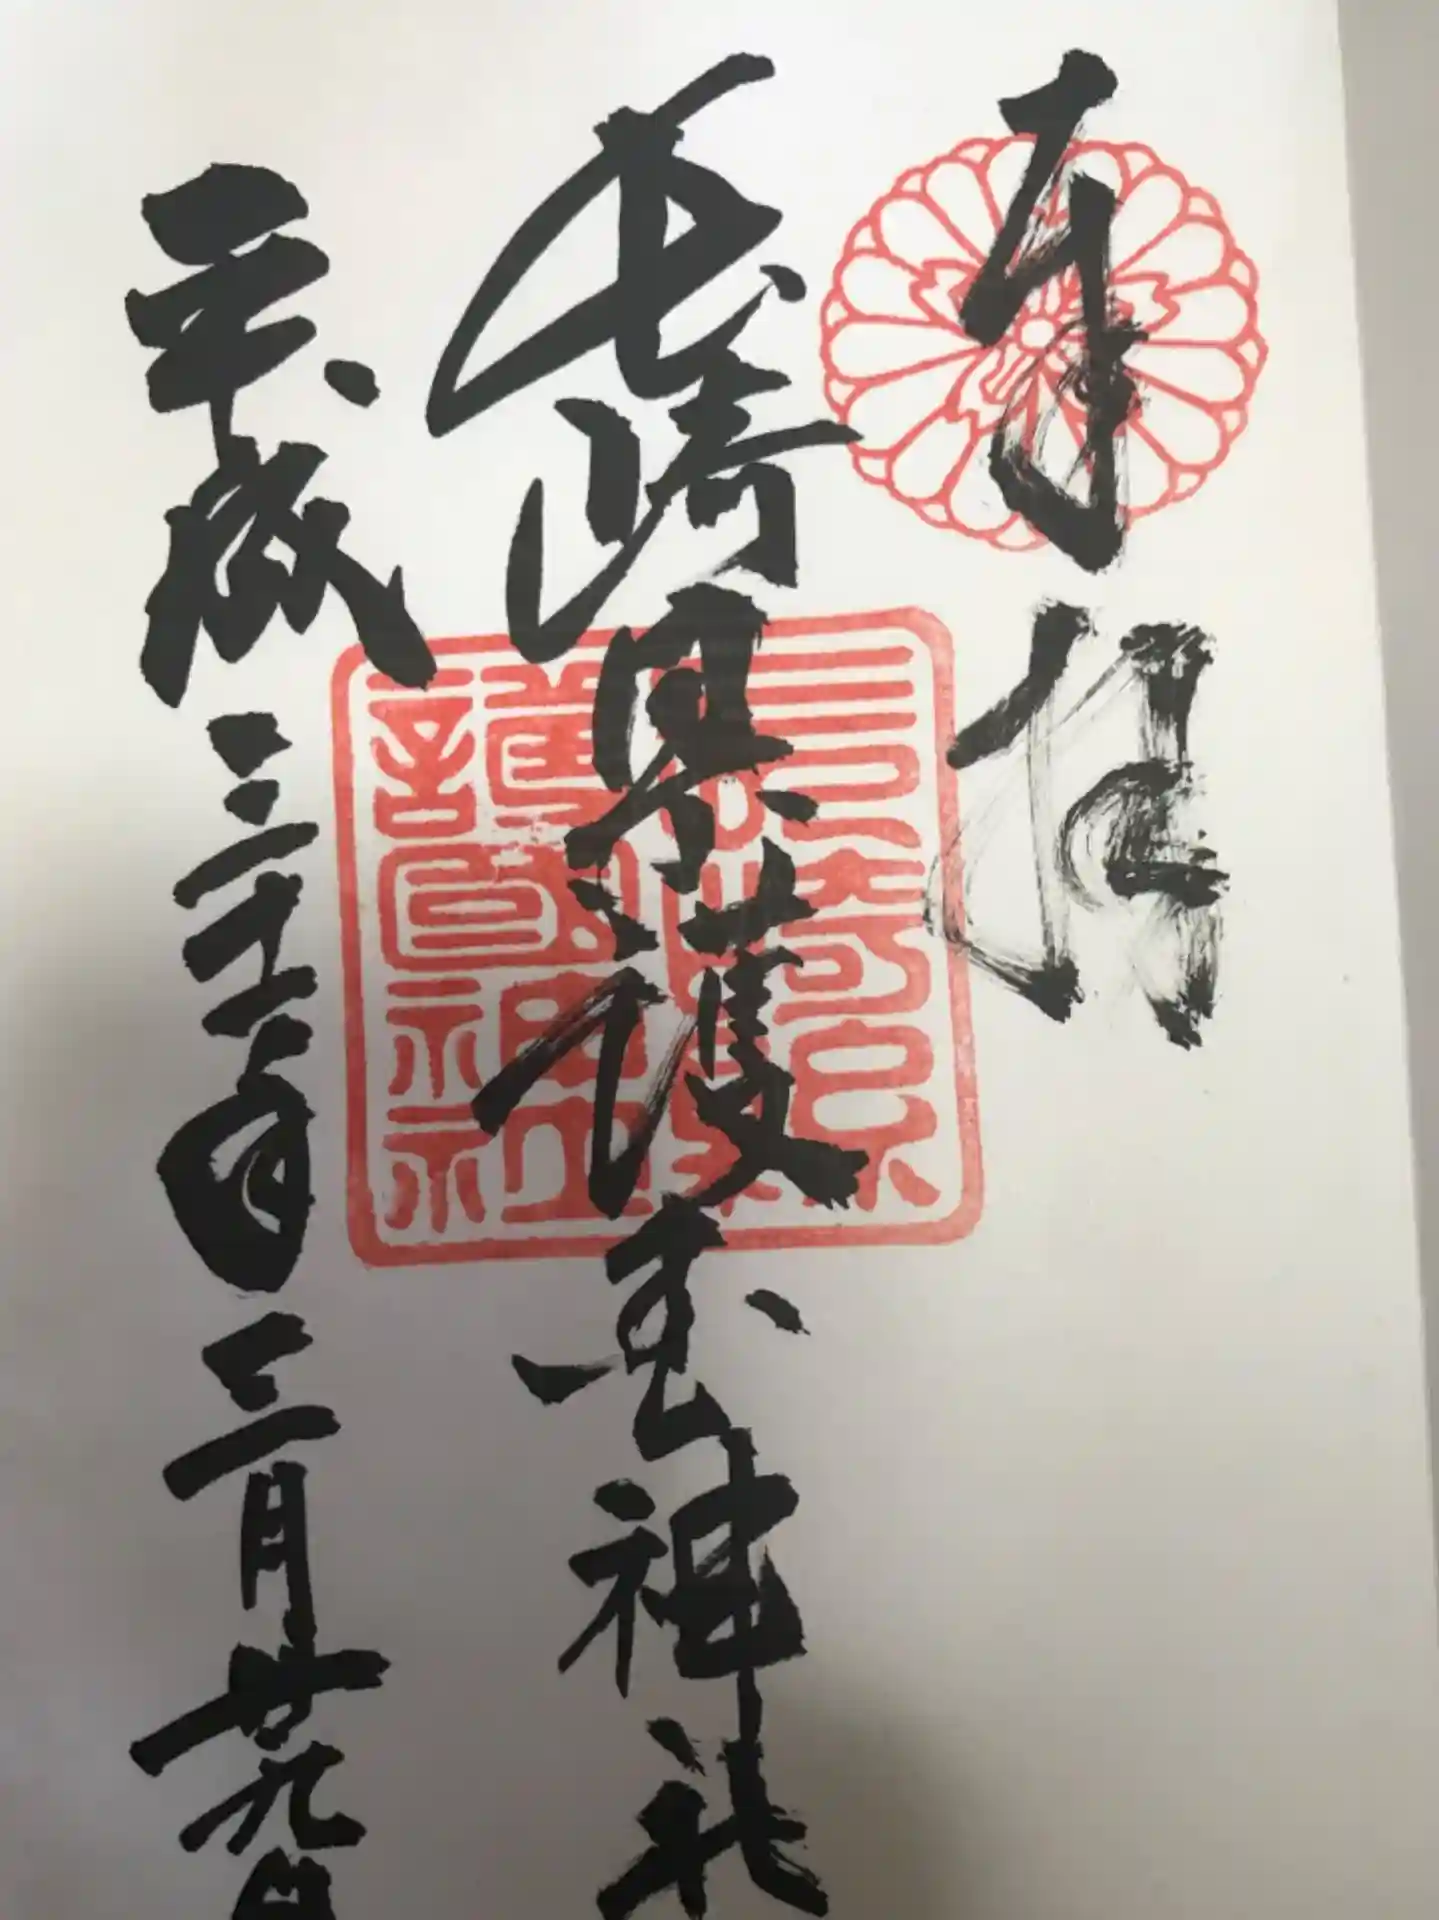 奉拝
長崎県護国神社
平成三十一年三月廿九日
長崎縣
護國神社